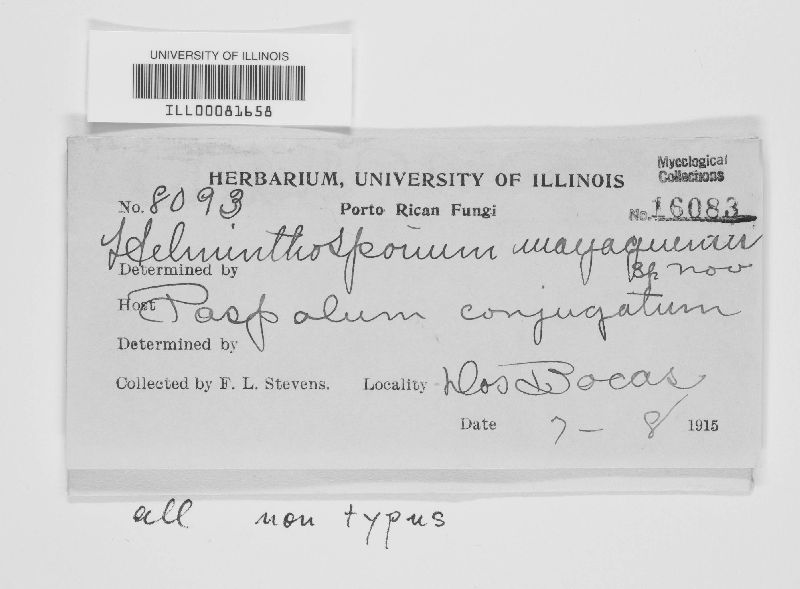 UNIVERSITY OF ILLINOIS
ILL00081658
HERBARIUM, UNIVERSITY OF ILLINOIS
Mycological Collections
No. 8093
Porto Rican Fungi
No. 16083
Helminthosporium mayaguezense
Determined by
sp nov
Host Paspalum conjugatum
Determined by
Collected by F. L. Stevens. Locality Dos Bocas
Date 7 - 8 1915
all non typus